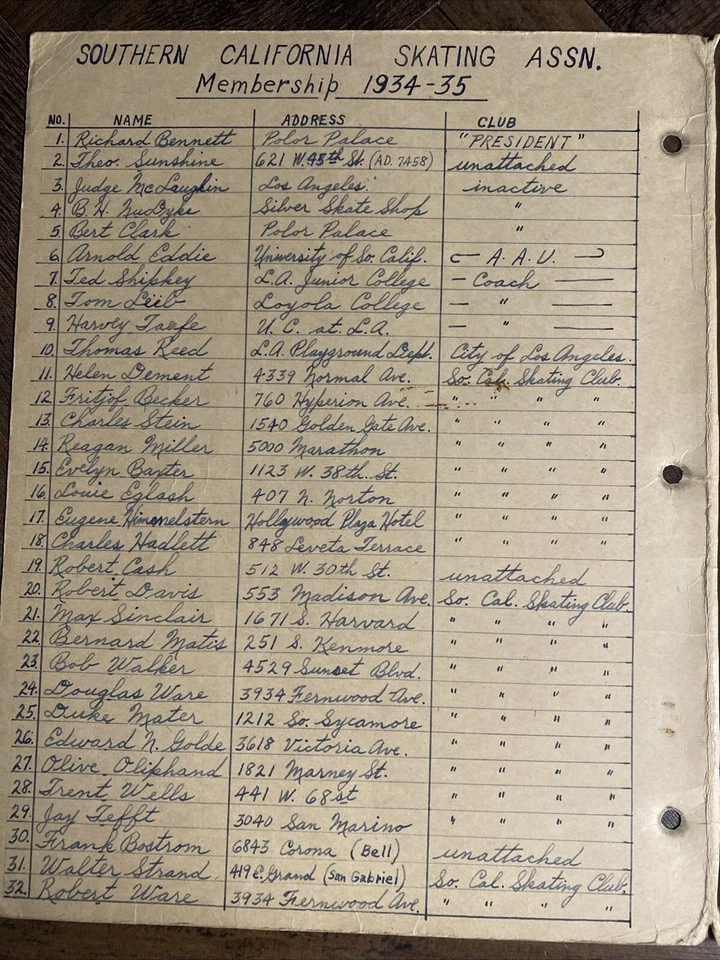 SOUTHERN CALIFORNIA SKATING ASSN.
Membership 1934-35
NO. NAME ADDRESS CLUB
1. Richard Bennett Polor Palace "PRESIDENT"
2. Theo. Sunshine 621 W. 45th St. (AD. 7458) unattached
3. Judge McLaughin Los Angeles. inactive
4. B. H. Silver Skate Shop "
5. Bert Clark Polor Palace "
6. Arnold Eddie University of So. Calif. — A.A.U. —
7. Ted Shipkey L.A. Junior College — Coach —
8. Tom Lieb Loyola College — " —
9. Harvey Taafe U.C. at L.A. — " —
10. Thomas Reed L.A. Playground Dept. City of Los Angeles.
11. Helen Dement 4339 Normal Ave. So. Cal. Skating Club.
12. Fritjof Becker 760 Hyperion Ave. " " " "
13. Charles Stein 1540 Golden Gate Ave. " " " "
14. Reagan Miller 5000 Marathon " " " "
15. Evelyn Baxter 1123 W. 38th. St. " " " "
16. Louie Eglash 407 N. Norton " " " "
17. Eugene Himmelstern Hollywood Plaza Hotel " " " "
18. Charles Hadlett 848 Leveta Terrace " " " "
19. Robert Cash 512 W. 30th St. unattached
20. Robert Davis 553 Madison Ave. So. Cal. Skating Club.
21. Max Sinclair 1671 S. Harvard " " " "
22. Bernard Matis 251 S. Kenmore " " " "
23. Bob Walker 4529 Sunset Blvd. " " " "
24. Douglas Ware 3934 Fernwood Ave. " " " "
25. Duke Mater 1212 So. Sycamore " " " "
26. Edward N. Golde 3618 Victoria Ave. " " " "
27. Olive Oliphand 1821 Marney St. " " " "
28. Trent Wells 441 W. 68st " " " "
29. Jay Tefft 3040 San Marino " " " "
30. Frank Bostrom 6843 Corona (Bell) unattached
31. Walter Strand. 419 E. Grand (San Gabriel) So. Cal. Skating Club.
32. Robert Ware 3934 Fernwood Ave. " " " "